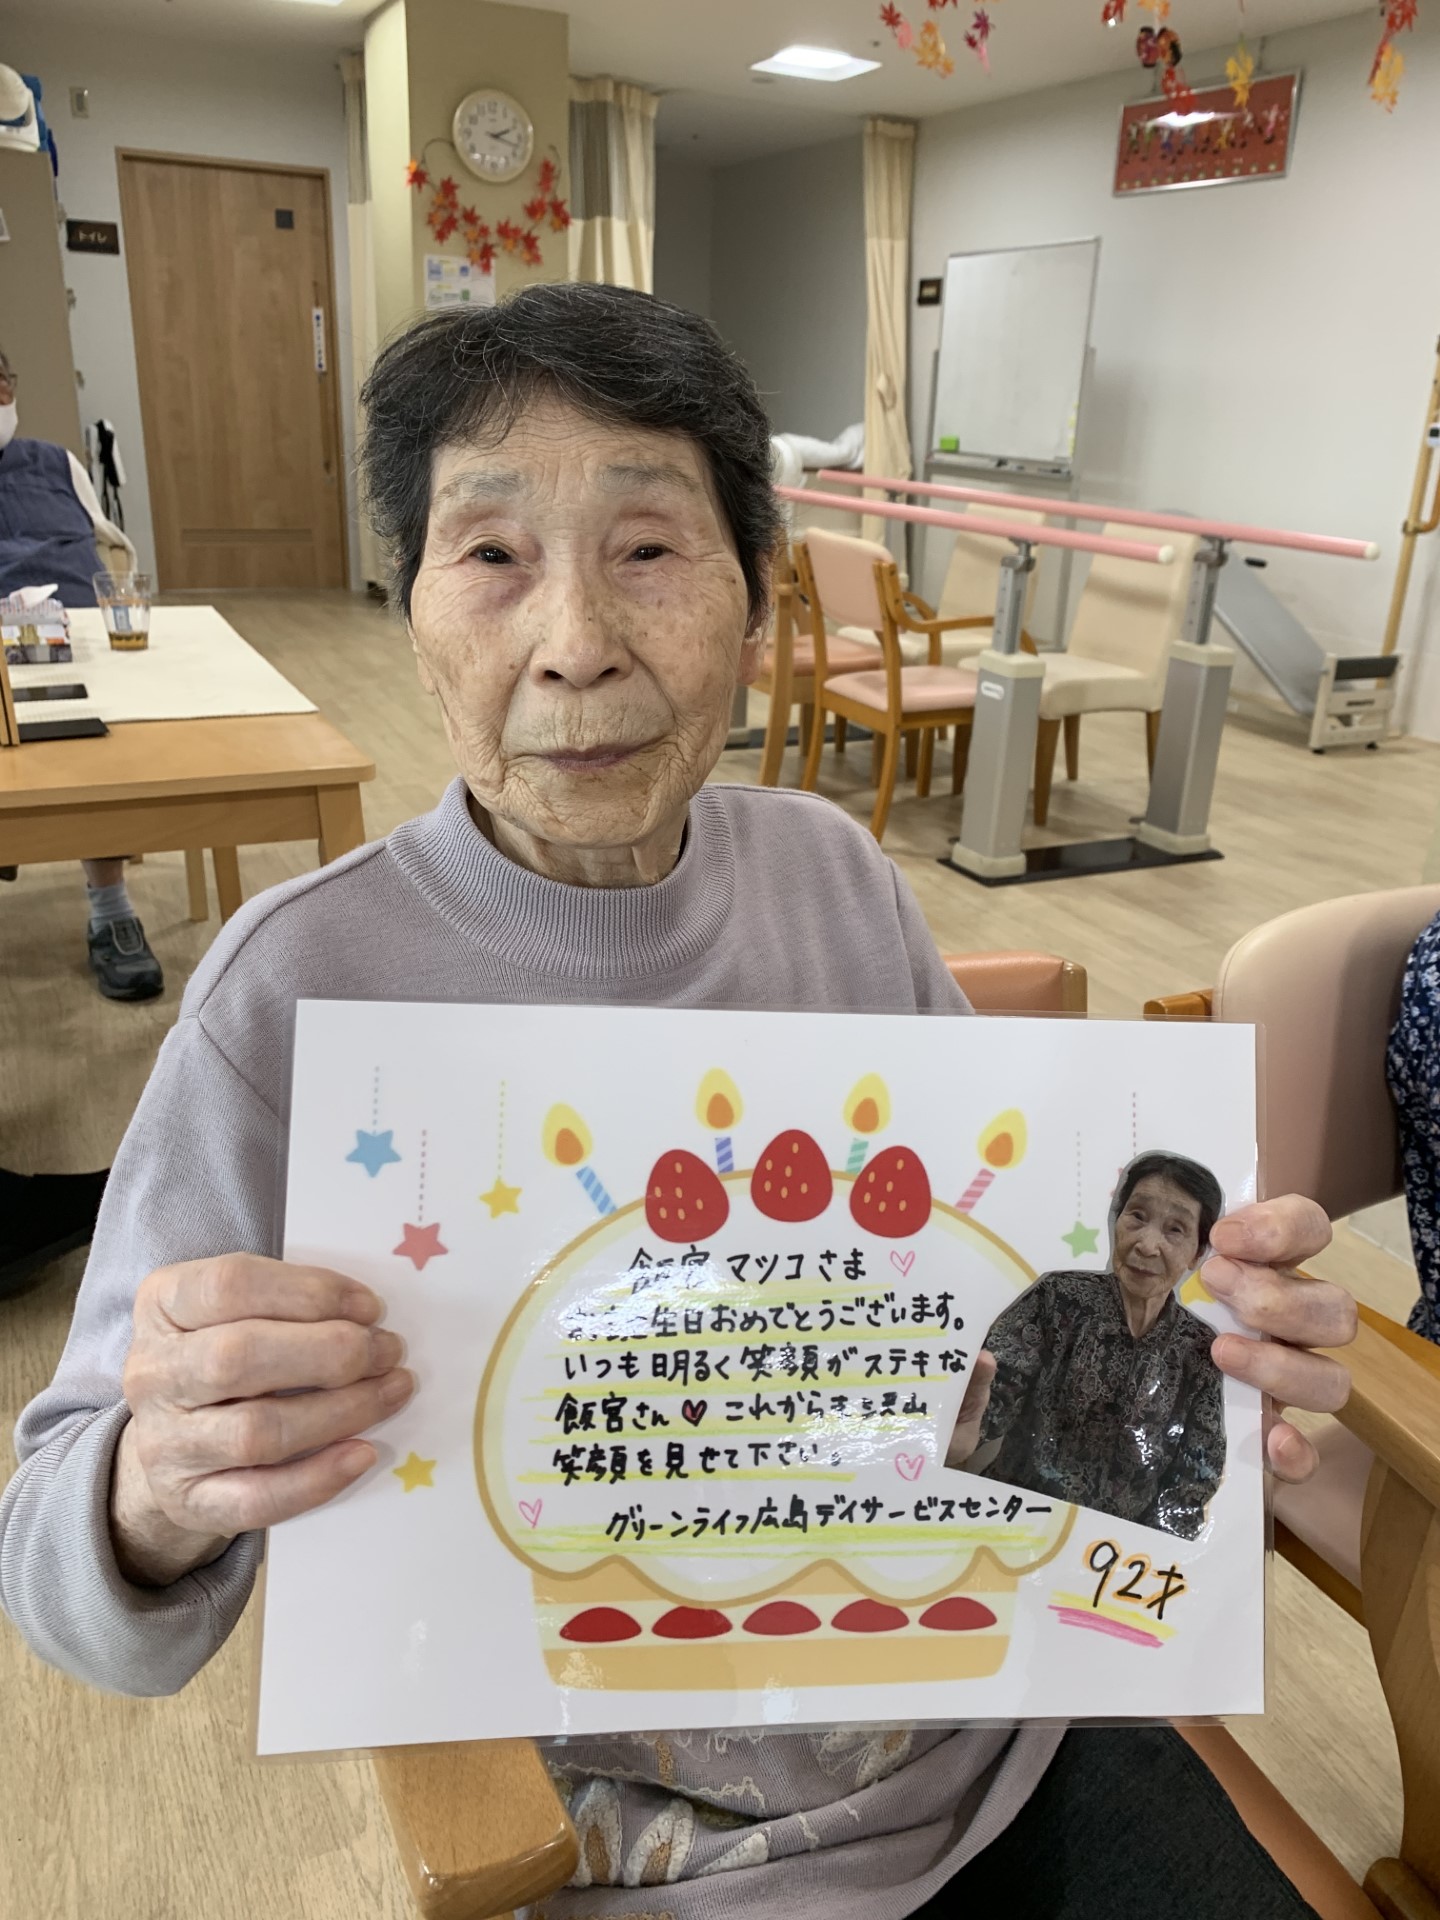 トイレ
飯宮 マツコさま
お誕生日おめでとうございます。
いつも明るく笑顔がステキな
飯宮さん これからも沢山
笑顔を見せて下さい。
グリーンライフ広島デイサービスセンター
92才